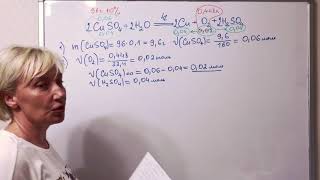 96г 10%
0,448л
2CuSO₄ + 2H₂O → 2Cu + O₂ + 2H₂SO₄
0,04 0,04 0,02 0,04
1) m(CuSO₄) = 96·0,1 = 9,6г ν(CuSO₄) = 9,6/160 = 0,06 моль
ν(O₂) = 0,448/22,4 = 0,02 моль
ν(CuSO₄)ост = 0,06 - 0,04 = 0,02 моль
ν(H₂SO₄) = 0,04 моль